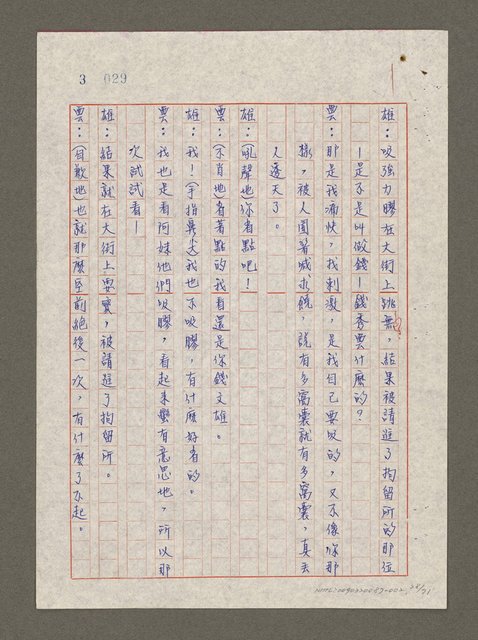 3 029
雄：吸強力膠在大街上跳舞，結果被請進了拘留所的那位
—是不是叫做錢—錢秀雲什麼的？
雲：那是我痛快，找刺激，是我自己要吸的，又不像你那
樣，被人圍著喊求饒，說有多窩囊就有多窩囊，真丟
人透天了。
雄：（吼聲地）你省點吧！
雲：（不肖地）省著點的我看還是你錢文雄。
雄：我！（手指鼻尖）我也不吸膠，有什麼好省的。
雲：我也是看阿妹他們吸膠，看起來蠻有意思地，所以那
次試試看—
雄：結果就在大街上耍寶，被請進了拘留所。
雲：（自歉地）也就那麼空前絕後一次，有什麼了不起。